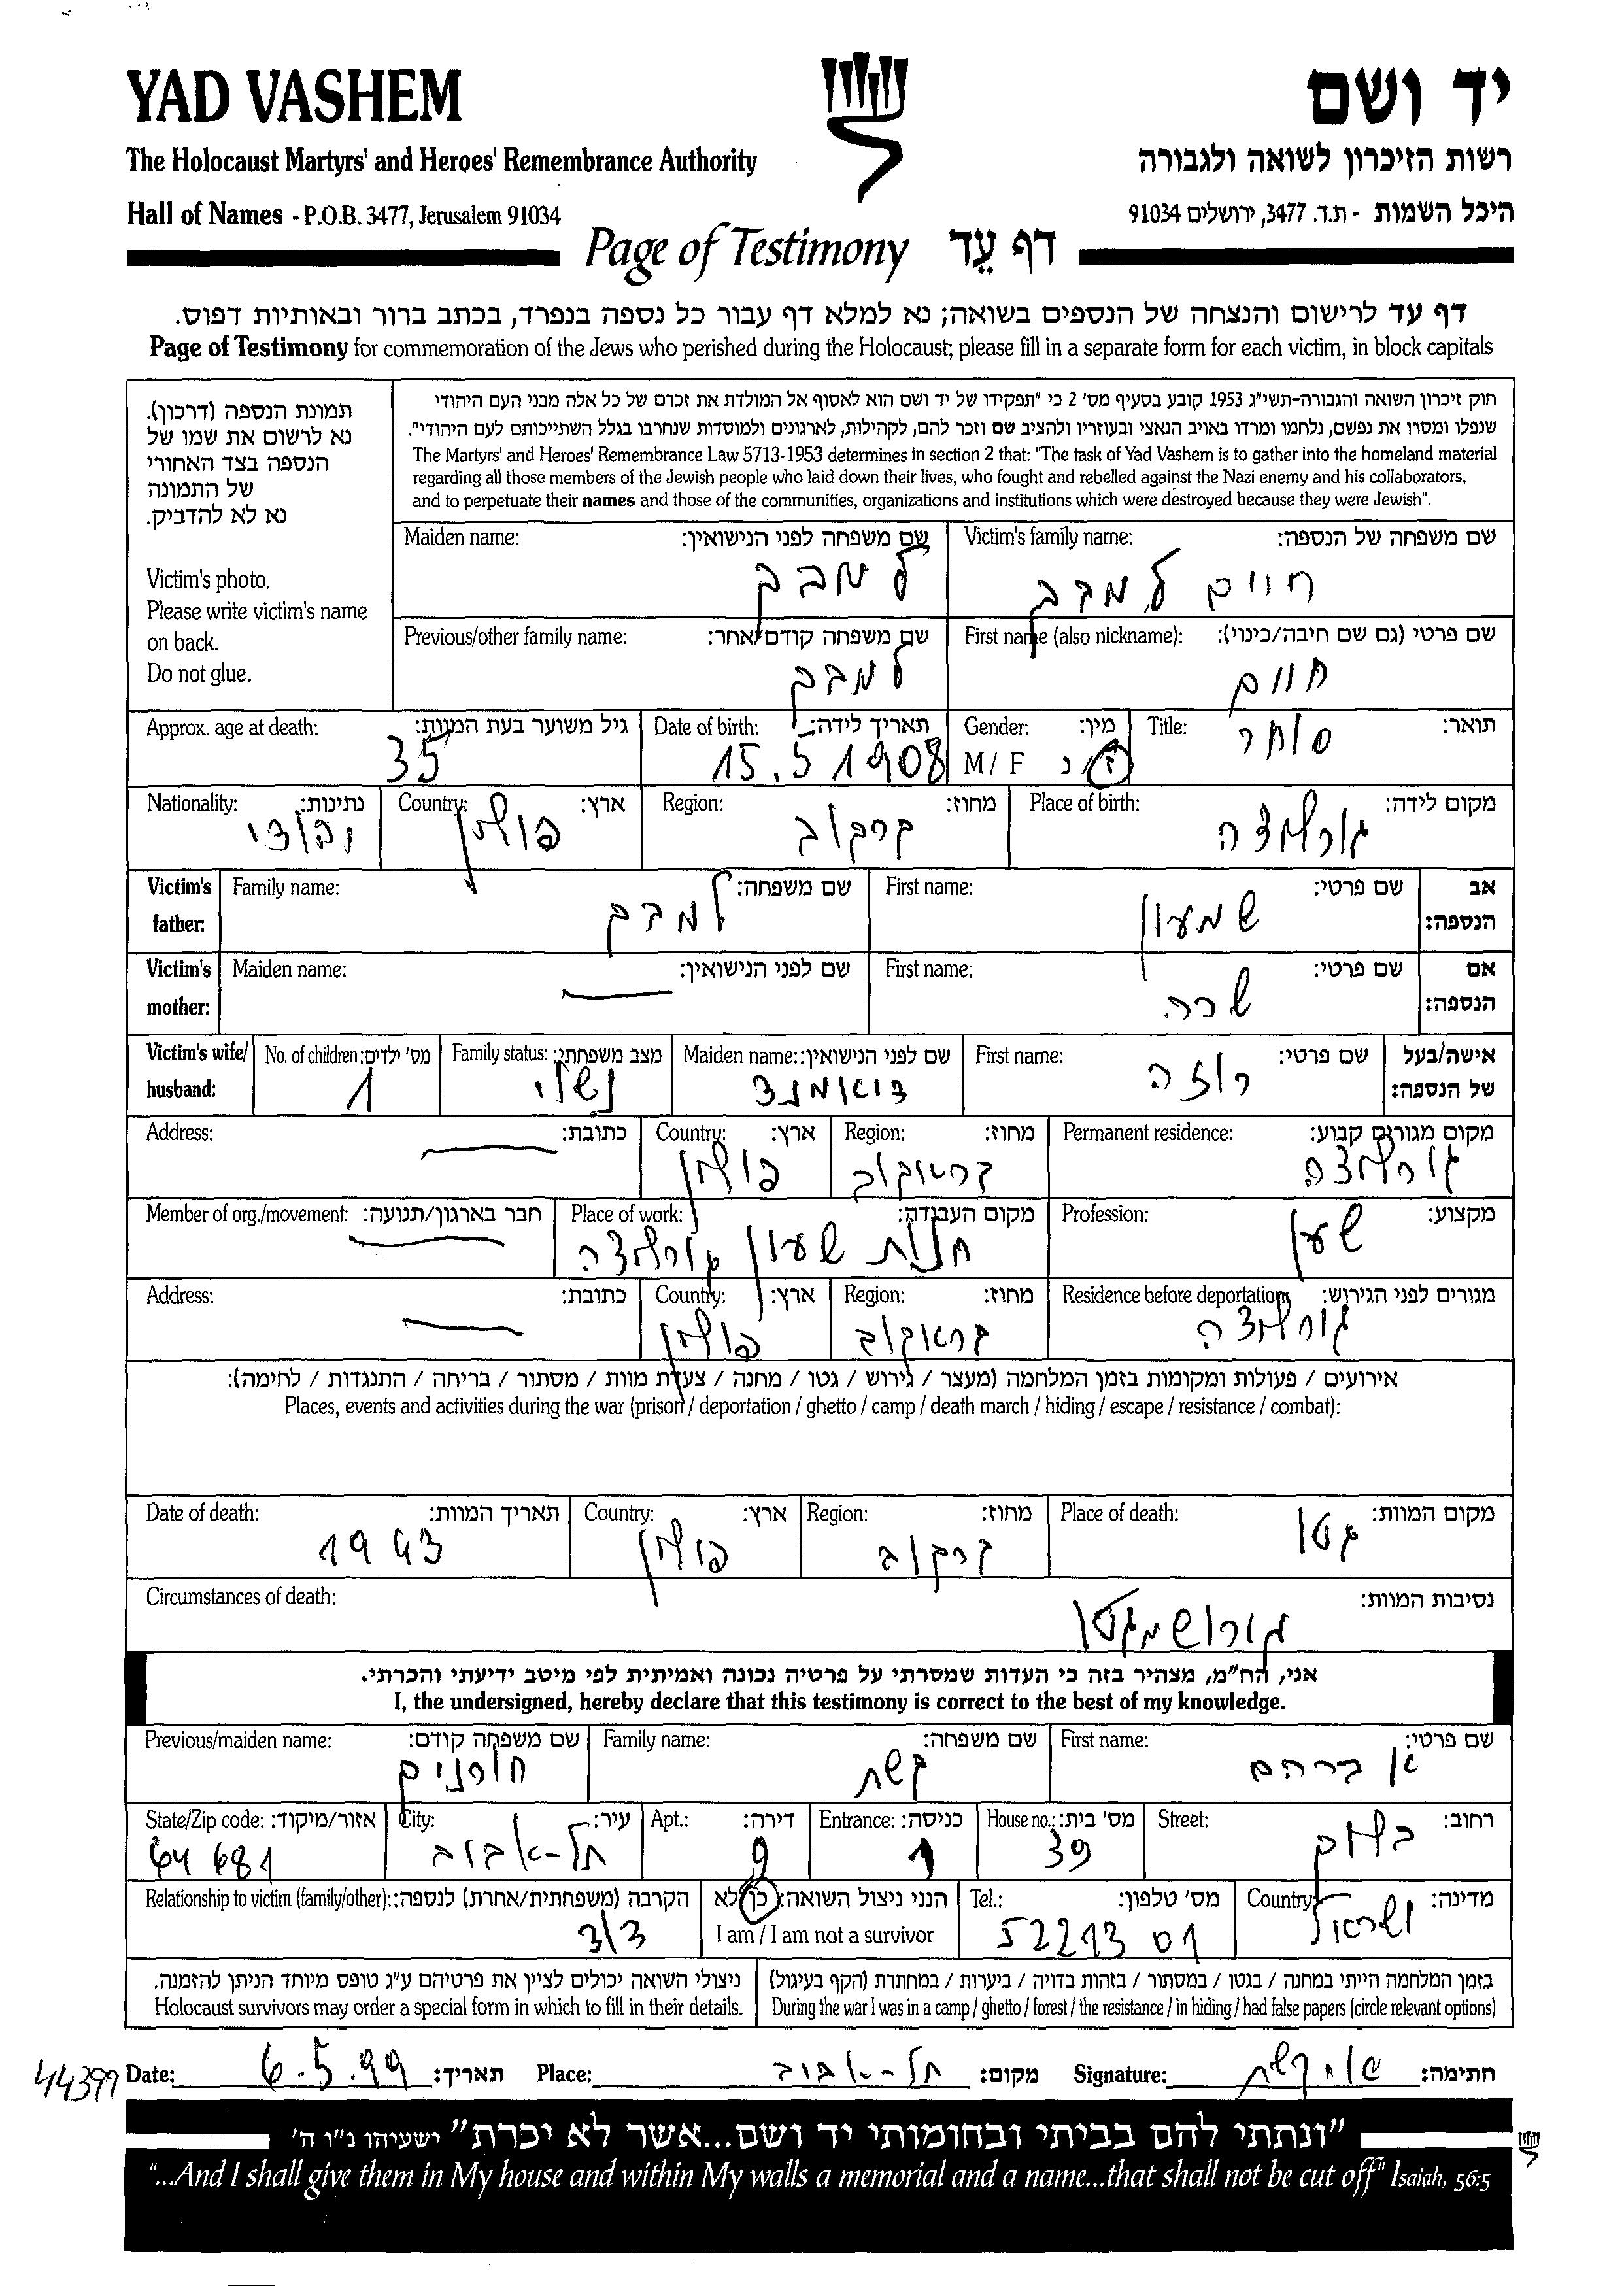 YAD VASHEM
יד ושם
The Holocaust Martyrs' and Heroes' Remembrance Authority
רשות הזיכרון לשואה ולגבורה
Hall of Names - P.O.B. 3477, Jerusalem 91034
היכל השמות - ת.ד. 3477, ירושלים 91034
Page of Testimony דף עֵד
דף עד לרישום והנצחה של הנספים בשואה; נא למלא דף עבור כל נספה בנפרד, בכתב ברור ובאותיות דפוס.
Page of Testimony for commemoration of the Jews who perished during the Holocaust; please fill in a separate form for each victim, in block capitals
תמונת הנספה (דרכון).
נא לרשום את שמו של
הנספה בצד האחורי
של התמונה
נא לא להדביק.
Victim's photo.
Please write victim's name
on back.
Do not glue.
חוק זיכרון השואה והגבורה-תשי"ג 1953 קובע בסעיף מס' 2 כי "תפקידו של יד ושם הוא לאסוף אל המולדת את זכרם של כל אלה מבני העם היהודי
שנפלו ומסרו את נפשם, נלחמו ומרדו באויב הנאצי ובעוזריו ולהציב שם וזכר להם, לקהילות, לארגונים ולמוסדות שנחרבו בגלל השתייכותם לעם היהודי".
The Martyrs' and Heroes' Remembrance Law 5713-1953 determines in section 2 that: "The task of Yad Vashem is to gather into the homeland material
regarding all those members of the Jewish people who laid down their lives, who fought and rebelled against the Nazi enemy and his collaborators,
and to perpetuate their names and those of the communities, organizations and institutions which were destroyed because they were Jewish".
Victim's family name: שם משפחה של הנספה:
חיים למבב
Maiden name: שם משפחה לפני הנישואין:
First name (also nickname): שם פרטי (גם שם חיבה/כינוי):
חיים
Previous/other family name: שם משפחה קודם/אחר:
Title: תואר:
סוחר
Gender: מין:
M / F ז / נ
Date of birth: תאריך לידה:
15.5 1908
Approx. age at death: גיל משוער בעת המוות:
35
Place of birth: מקום לידה:
גורליצה
Region: מחוז:
קרקוב
Country: ארץ:
פולין
Nationality: נתינות:
יהודי
Victim's father: אב הנספה:
First name: שם פרטי:
שמעון
Family name: שם משפחה:
Victim's mother: אם הנספה:
First name: שם פרטי:
שרה
Maiden name: שם לפני הנישואין:
Victim's wife/ husband: אישה/בעל של הנספה:
First name: שם פרטי:
רוזה
Maiden name: שם לפני הנישואין:
דיאמנד
Family status: מצב משפחתי:
נשוי
No. of children: מס' ילדים:
1
Permanent residence: מקום מגורים קבוע:
גורליצה
Region: מחוז:
קראקוב
Country: ארץ:
פולין
Address: כתובת:
Profession: מקצוע:
שען
Place of work: מקום העבודה:
חנות שעון גורליצה
Member of org./movement: חבר בארגון/תנועה:
Residence before deportation: מגורים לפני הגירוש:
גורליצה
Region: מחוז:
קראקוב
Country: ארץ:
פולין
Address: כתובת:
אירועים / פעולות ומקומות בזמן המלחמה (מעצר / גירוש / גטו / מחנה / צעדת מוות / מסתור / בריחה / התנגדות / לחימה):
Places, events and activities during the war (prison / deportation / ghetto / camp / death march / hiding / escape / resistance / combat):
Place of death: מקום המוות:
גטו
Region: מחוז:
קרקוב
Country: ארץ:
פולין
Date of death: תאריך המוות:
1943
Circumstances of death: נסיבות המוות:
גורוש מגטו
אני, הח"מ, מצהיר בזה כי העדות שמסרתי על פרטיה נכונה ואמיתית לפי מיטב ידיעתי והכרתי.
I, the undersigned, hereby declare that this testimony is correct to the best of my knowledge.
First name: שם פרטי:
אברהם
Family name: שם משפחה:
קשת
Previous/maiden name: שם משפחה קודם:
Street: רחוב:
House no.: מס' בית:
39
Entrance: כניסה:
1
Apt.: דירה:
9
City: עיר:
תל-אביב
State/Zip code: אזור/מיקוד:
64681
Country: מדינה:
ישראל
Tel.: מס' טלפון:
5221301
הנני ניצול השואה: כן/לא
I am / I am not a survivor
Relationship to victim (family/other): הקרבה (משפחתית/אחרת) לנספה:
בזמן המלחמה הייתי במחנה / בגטו / במסתור / בזהות בדויה / ביערות / במחתרת (הקף בעיגול)
During the war I was in a camp / ghetto / forest / the resistance / in hiding / had false papers (circle relevant options)
ניצולי השואה יכולים לציין את פרטיהם ע"ג טופס מיוחד הניתן להזמנה.
Holocaust survivors may order a special form in which to fill in their details.
44399
Date: 6.5.99 תאריך: Place: תל-אביב מקום: Signature: חתימה:
"ונתתי להם בביתי ובחומותי יד ושם...אשר לא יכרת" ישעיהו נ"ו ה'
"...And I shall give them in My house and within My walls a memorial and a name...that shall not be cut off" Isaiah, 56:5